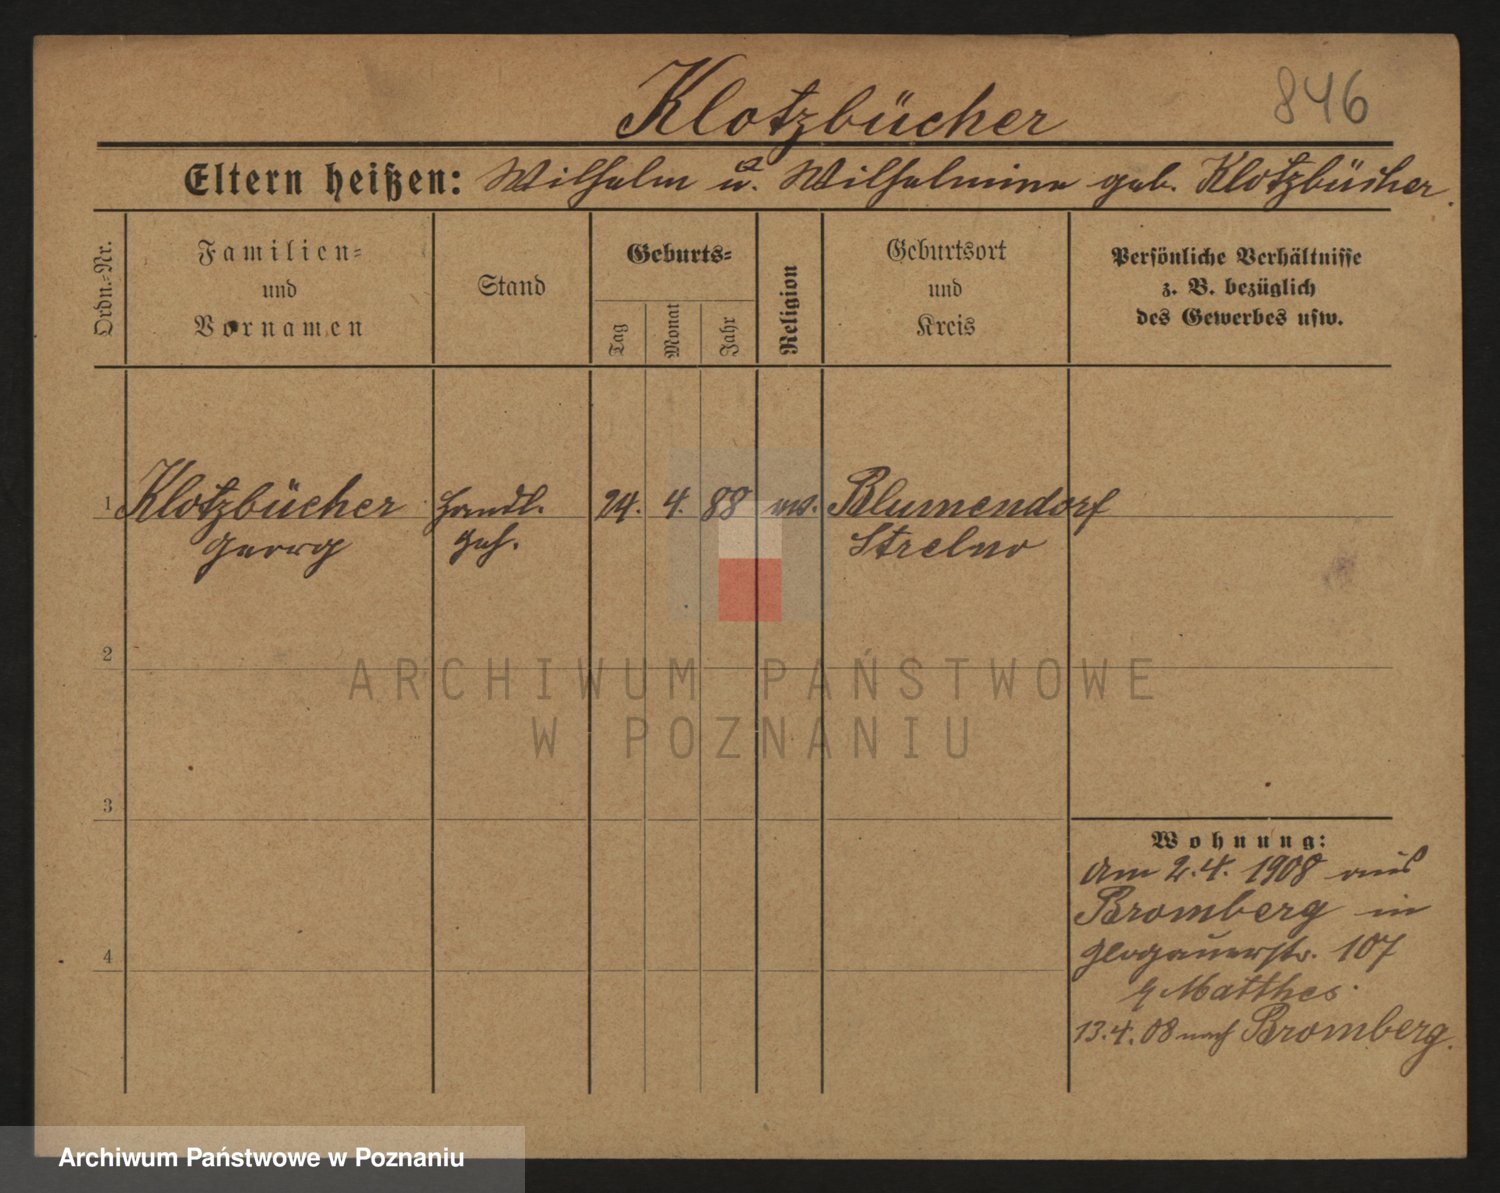 846
Klotzbücher
Eltern heißen: Wilhelm u. Wilhelmine geb. Klotzbücher.
Ordn.-Nr.
Familien-
und
Vornamen
Stand
Geburts-
Tag
Monat
Jahr
Religion
Geburtsort
und
Kreis
Persönliche Verhältnisse
z. B. bezüglich
des Gewerbes usw.
1 Klotzbücher Handl. 24. 4. 88 ev. Blumendorf
Georg Geh. Strelno
2
ARCHIWUM PAŃSTWOWE
W POZNANIU
3
Wohnung:
Am 2.4. 1908 aus
Bromberg in
Glogauerstr. 107
Matthes.
13.4.08 nach Bromberg.
4
Archiwum Państwowe w Poznaniu